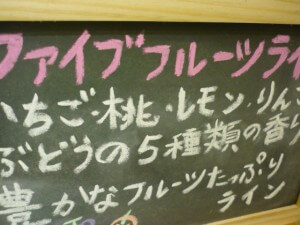 ファイブフルーツライ
いちご・桃・レモン・りんご
ぶどうの5種類の香り
豊かなフルーツたっぷり
ライン